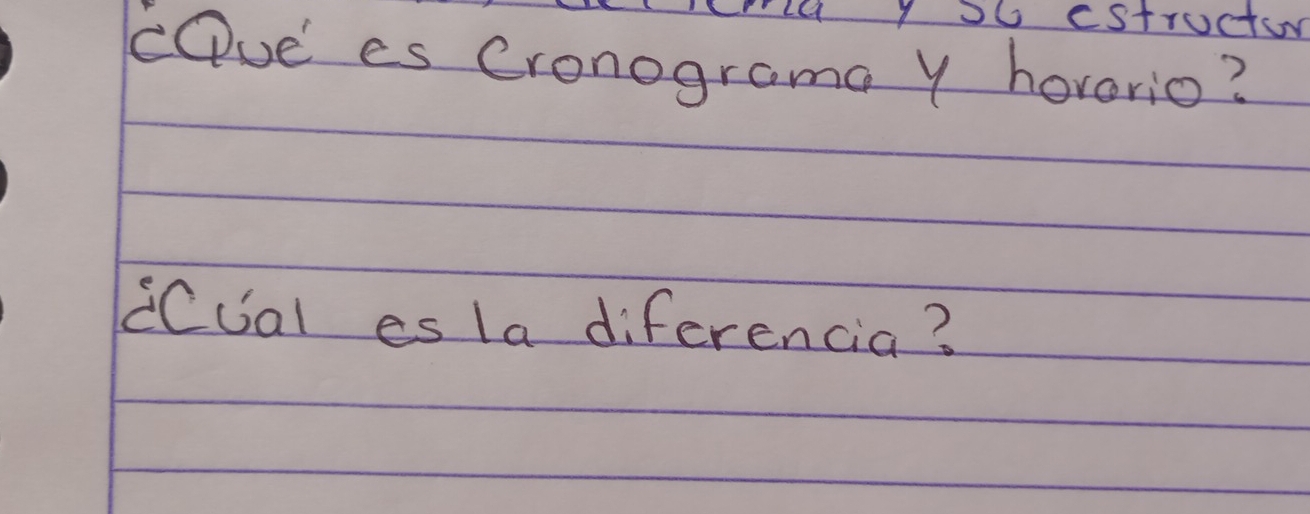 y su estructur
¿Qué es Cronograma y horario?
¿Cúal es la diferencia?